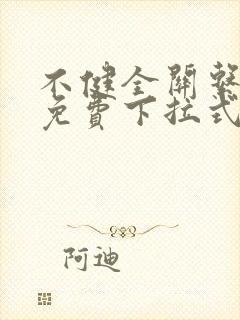 不健全關繫
免費下拉式
阿迪